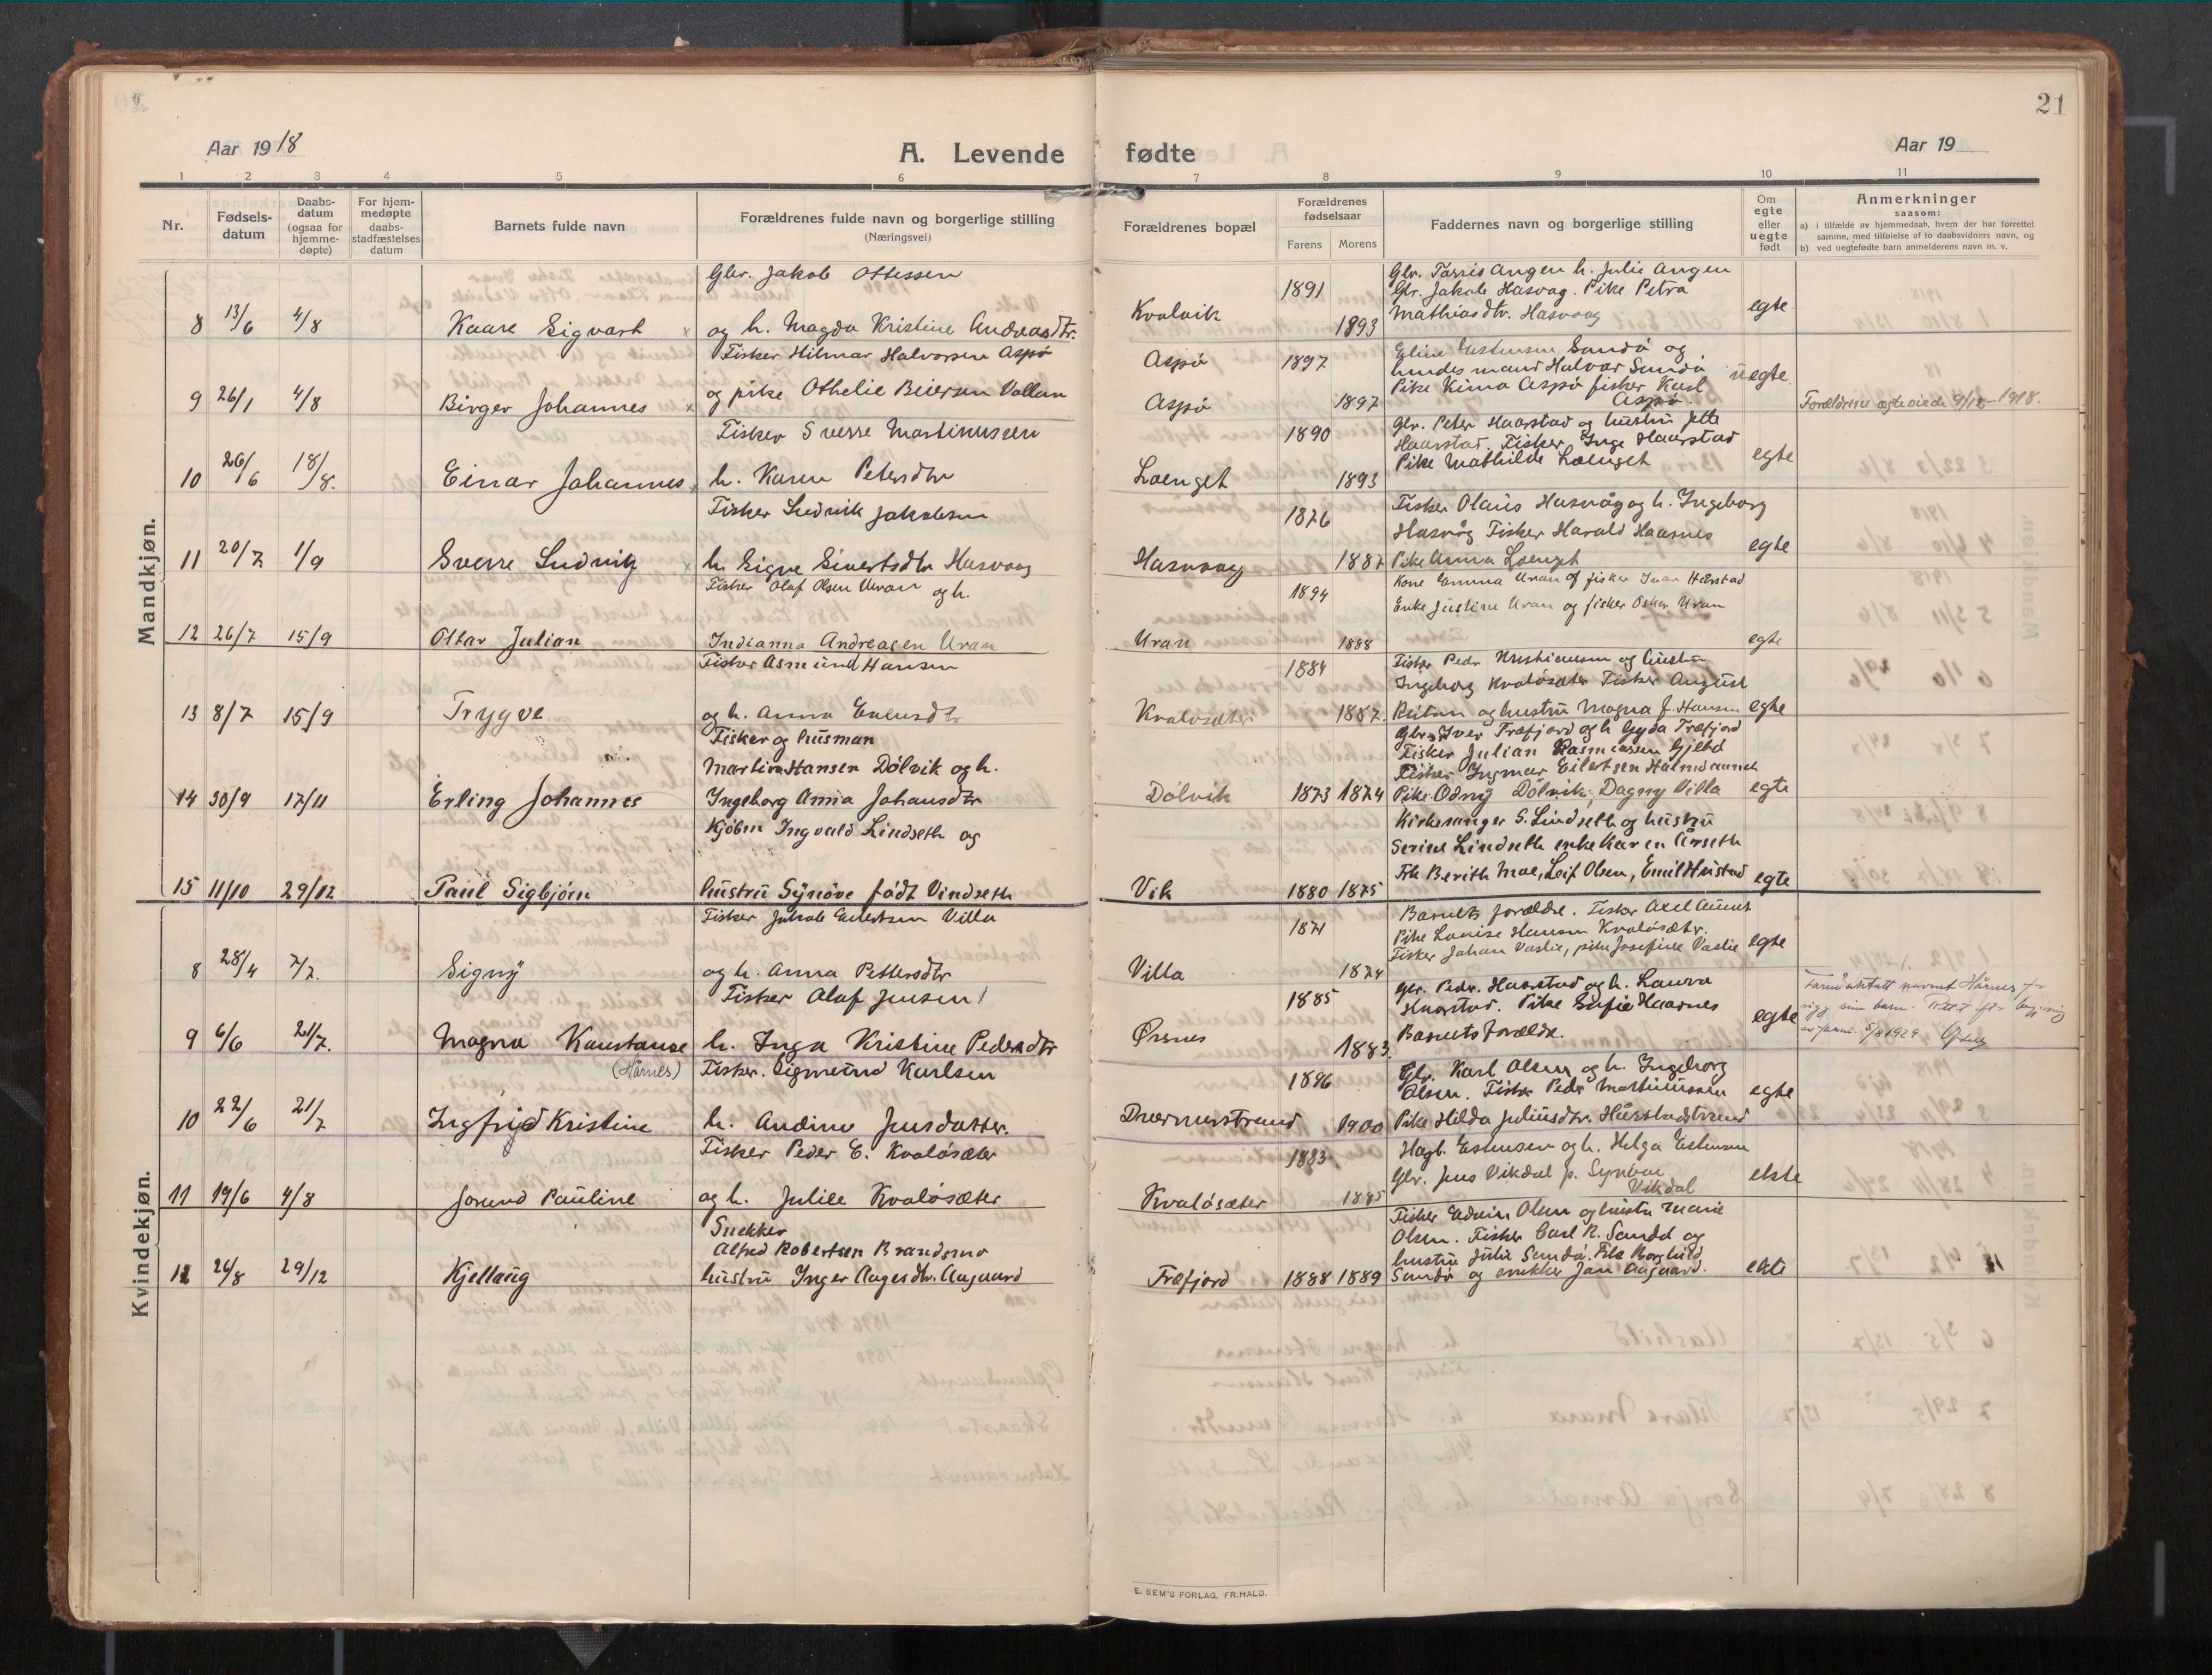 21
Aar 1918
A. Levende fødte
Aar 19
1 2 3 4 5 6 7 8 9 10 11
Nr.
Fødsels-
datum
Daabs-
datum
(ogsaa for
hjemme-
døpte)
For hjem-
medøpte
daabs-
stadfæstelses
datum
Barnets fulde navn
Forældrenes fulde navn og borgerlige stilling
(Næringsvei)
Forældrenes bopæl
Forældrenes
fødselsaar
Farens Morens
Faddernes navn og borgerlige stilling
Om
egte
eller
uegte
født
Anmerkninger
saasom:
a) i tilfælde av hjemmedaab, hvem der har forrettet
samme, med tilføielse af to daabsvidners navn, og
b) ved uegtefødte barn anmelderens navn m. v.
Mandkjøn.
8 13/6 4/8 Kaare Sigvart x
Gbr. Jakob Ottessen
og h. Magda Kristine Andreasdtr.
Kvalvik 1891 1893
Gbr. Tarris Angen h. Julie Angen
Gbr. Jakob Hasvag. Pike Petra
Mathiasdtr. Hasvaag
egte
9 26/1 4/8 Birger Johannes x
Fisker Hilmar Halvorsen Aspø
og pike Othelie Beiersen Vollan
Aspø 1897
Aspø 1897
Eline Estensen Sandø og
hindes mand Halvor Sandø
Pike Kima Aspø fisker Karl
Aspø.
uegte
Forældrene ægteviede 9/12-1918.
10 26/6 18/8. Einar Johannes x
Fisker Sverre Martinussen
h. Karen Petersdtr
Loenget 1890 1893
Gbr. Peter Haarstad og hustru Jette
Haarstad. Fisker Inge Haarstad
Pike Mathilde Loenget
egte
11 20/7 1/9 Sverre Ludvik x
Fisker Ludvik Jakobsen
h. Signe Sivertsdtr Hasvaag
Hasvaag 1876 1887
Fisker Olaus Hasvåg og h. Ingeborg
Hasvåg Fisker Harald Haarnes
Pike Anna Loenget
egte
12 26/7 15/9 Ottar Julian
Fisker Olaf Olsen Uran og h.
Indianna Andreasen Uran
Uran 1894 1888
Kone Emma Uran og fisker Ivar Hærstad
Enke Justine Uran og fisker Oskar Uran
egte
13 8/7 15/9 Trygve
Fisker Asmund Hansen
og h. Anna Evensdtr
Kvaløsæter 1884 1887.
Fisker Peder Kristiansen og hustru
Ingeborg Kvaløsæter Fisker August
Reitan og hustru Magna f. Hansen
egte
14 30/9 17/11 Erling Johannes
Fisker og husman
Martin Hansen Dølvik og h.
Ingeborg Anna Johansdtr
Dølvik 1873 1874
Gbr. Iver Træfjord og h Gyda Træfjord
Fisker Julian Rasmussen Gjeld
Fisker Ingmar Eilertsen Halmøaunet
Pike Odny Dølvik, Dagny Villa
egte
15 11/10 29/12 Paul Sigbjørn
Kjøbm Ingvald Lindseth og
hustru Synøve født Vindseth
Vik 1880 1875
Kirkesanger S. Lindseth og hustru
Serine Lindseth enke Karen Årseth
Frk Berith Moe, Leif Olsen, Emil Hustad
egte
Kvindekjøn.
8 28/4 7/7. Signy
Fisker Jakob Eilertsen Villa
og h. Anna Pettersdtr
Villa 1871 1874
Barnets forældre. Fisker Axel Aunet
Pike Lovise Hansen Kvaløsætr.
Fisker Johan Vaslie, pike Josefine Vaslie
egte
9 6/6 21/7. Magna Konstanse
(Hårnes)
Fisker Olaf Jensen
h. Inga Kristine Pedersdtr
Ørsnes 1885 1883.
Gbr. Peder. Haarstad og h. Laura
Haarstad. Pike Sofie Haarnes
Barnets forældre.
egte
navnet Hårnes for
sine barn.
5/8 1929
10 22/6 21/7 Ingfrid Kristine
Fisker. Sigmund Karlsen
h. Andine Jensdatter.
Dværnesstrand 1896 1900
Gbr. Karl Olsen og h. Ingeborg
Olsen. Fisker Peder Martinussen
Pike Hilda Juliusdtr. Harstadstrand
egte
11 19/6 4/8 Jorund Pauline
Fisker Peder E. Kvaløsæter
og h. Julie Kvaløsæter
Kvaløsæter 1883 1885
Hagb. Estensen og h. Helga Estensen
Gbr. Jens Vikdal p. Synove
Vikdal
ekte
12 26/8 29/12 Kjellaug
Snekker
Alfred Robertsen Brandsmo
hustru Inger Aagesdtr. Aagaard
Træfjord 1888 1889
Fisker Edvin Olsen og hustru Marie
Olsen. Fisker Carl R. Sandø og
hustru Julie Sandø. Pike Borghild
Sandø og snekker Jan Aagaard.
ekte
E. SEM'S FORLAG, FR.HALD.